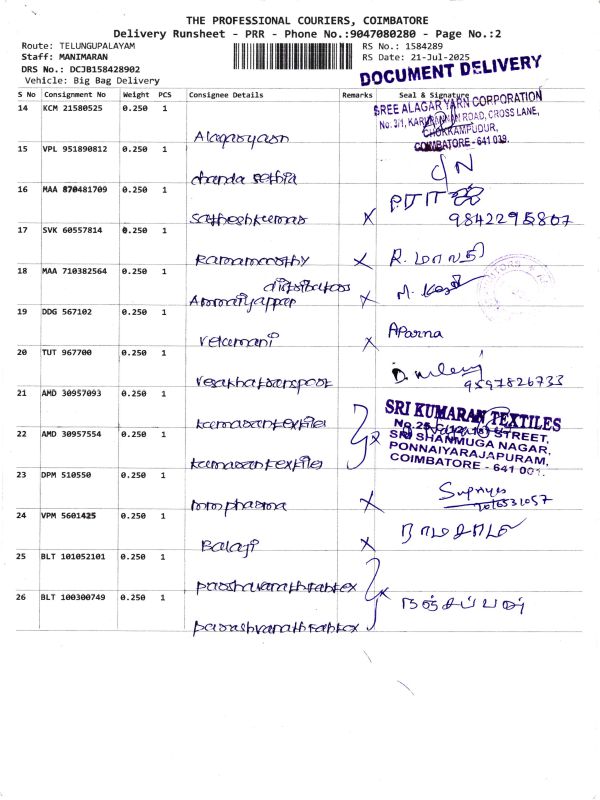 THE PROFESSIONAL COURIERS, COIMBATORE
Delivery Runsheet - PRR - Phone No.:9047080280 - Page No.:2
Route: TELUNGUPALAYAM
RS No.: 1584289
Staff: MANIMARAN
RS Date: 21-Jul-2025
DRS No.: DCJB158428902
Vehicle: Big Bag Delivery
DOCUMENT DELIVERY
S No Consignment No Weight PCS Consignee Details Remarks Seal & Signature
14 KCM 21580525 0.250 1
SREE ALAGAR YARN CORPORATION
ROAD, CROSS LANE,
CHOKKAMPUDUR,
COIMBATORE - 641 039.
15 VPL 951890812 0.250 1
C/N
16 MAA 870481709 0.250 1
Satheshkumar X 9842295807
17 SVK 60557814 0.250 1
Ramamoorthy X R. மாலதி
18 MAA 710382564 0.250 1
Ammaiyappar X
19 DDG 567102 0.250 1
Velumani X Aparna
20 TUT 967700 0.250 1
9597826733
21 AMD 30957093 0.250 1
kumarantextiles
SRI KUMARAN TEXTILES
STREET,
SRI SHANMUGA NAGAR,
PONNAIYARAJAPURAM,
COIMBATORE - 641 001.
22 AMD 30957554 0.250 1
kumarantextiles X
23 DPM 510550 0.250 1
mmpharma X
24 VPM 5601425 0.250 1
Balaji X
25 BLT 101052101 0.250 1
26 BLT 100300749 0.250 1